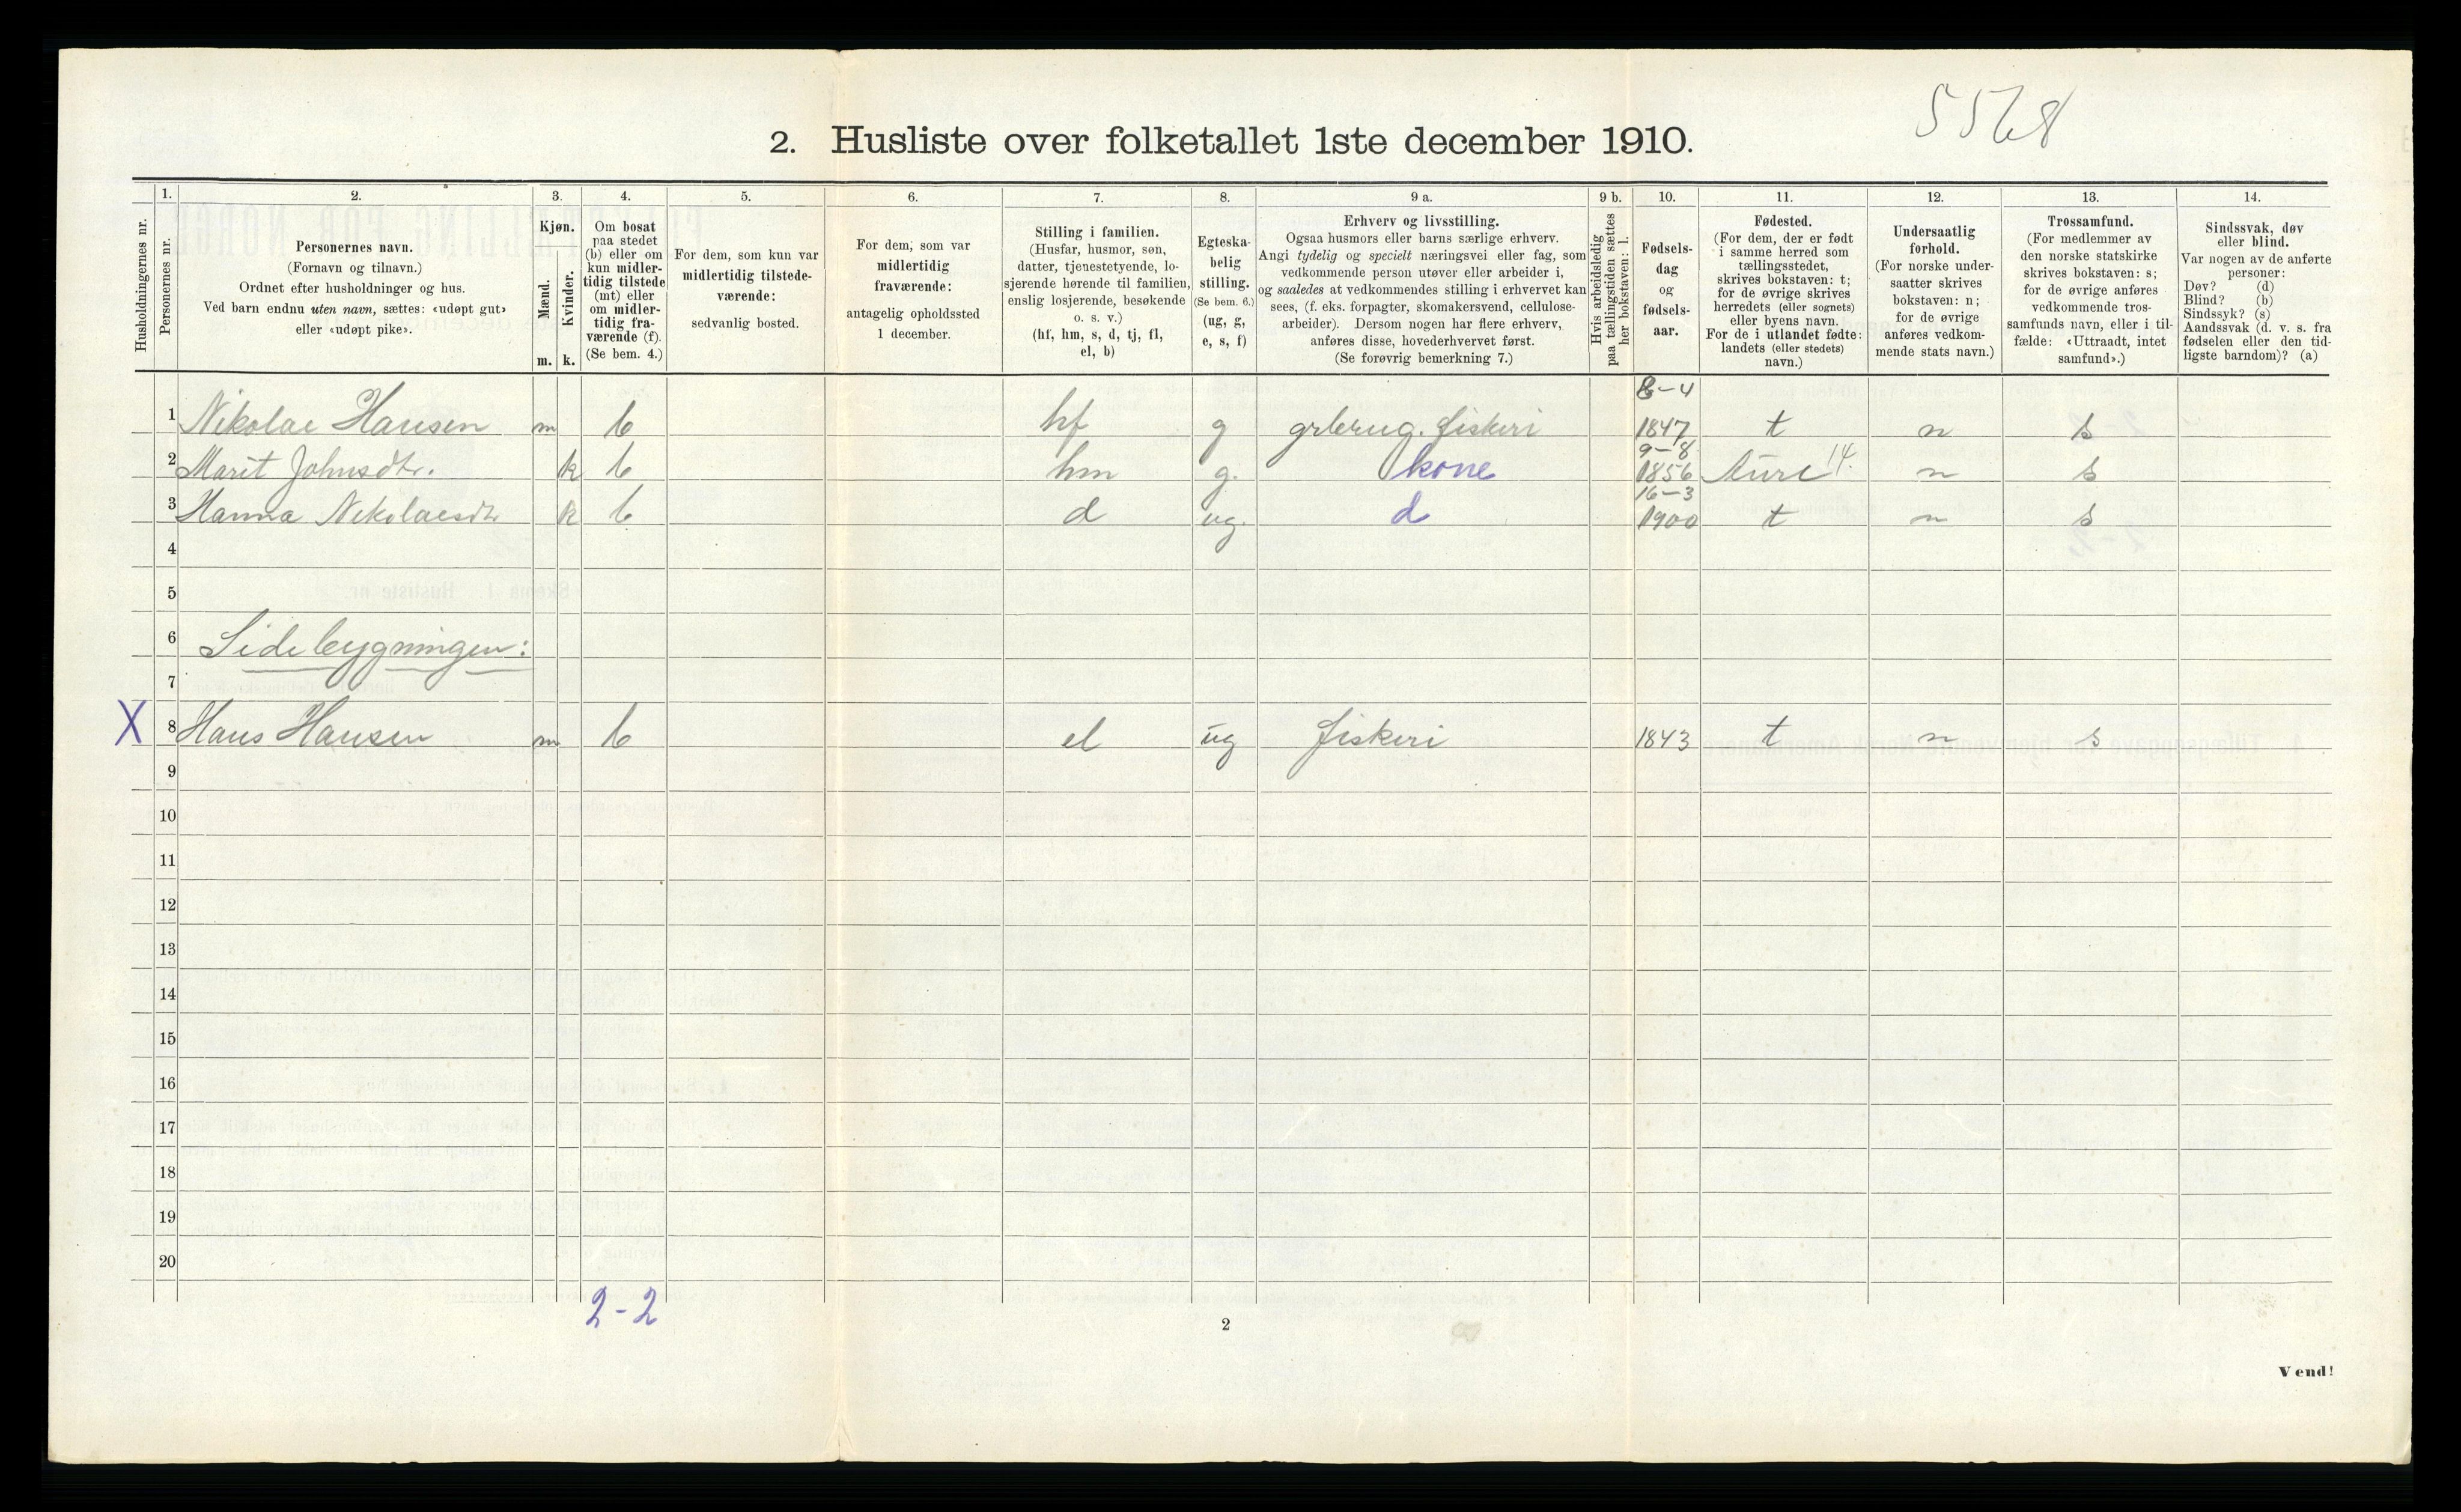 5568
2. Husliste over folketallet 1ste december 1910.
Husholdningernes nr.
1.
Personernes nr.
2.
Personernes navn.
(Fornavn og tilnavn.)
Ordnet efter husholdninger og hus.
Ved barn endnu uten navn, sættes: «udøpt gut»
eller «udøpt pike».
3.
Kjøn.
Mænd.
Kvinder.
m. k.
4.
Om bosat
paa stedet
(b) eller om
kun midler-
tidig tilstede
(mt) eller
om midler-
tidig fra-
værende (f).
(Se bem. 4.)
5.
For dem, som kun var
midlertidig tilstede-
værende:
sedvanlig bosted.
6.
For dem, som var
midlertidig
fraværende:
antagelig opholdssted
1 december.
7.
Stilling i familien.
(Husfar, husmor, søn,
datter, tjenestetyende, lo-
sjerende hørende til familien,
enslig losjerende, besøkende
o. s. v.)
(hf, hm, s, d, tj, fl,
el, b)
8.
Egteska-
belig
stilling.
(Se bem. 6.)
(ug, g,
e, s, f)
9 a.
Erhverv og livsstilling.
Ogsaa husmors eller barns særlige erhverv.
Angi tydelig og specielt næringsvei eller fag, som
vedkommende person utøver eller arbeider i,
og saaledes at vedkommendes stilling i erhvervet kan
sees, (f. eks. forpagter, skomakersvend, cellulose-
arbeider). Dersom nogen har flere erhverv,
anføres disse, hovederhvervet først.
(Se forøvrig bemerkning 7.)
9 b.
Hvis arbeidsledig
paa tællingstiden sættes
her bokstaven: l.
10.
Fødsels-
dag
og
fødsels-
aar.
11.
Fødested.
(For dem, der er født
i samme herred som
tællingsstedet,
skrives bokstaven: t;
for de øvrige skrives
herredets (eller sognets)
eller byens navn.
For de i utlandet fødte:
landets (eller stedets)
navn.)
12.
Undersaatlig
forhold.
(For norske under-
saatter skrives
bokstaven: n;
for de øvrige
anføres vedkom-
mende stats navn.)
13.
Trossamfund.
(For medlemmer av
den norske statskirke
skrives bokstaven: s;
for de øvrige anføres
vedkommende tros-
samfunds navn, eller i til-
fælde: «Uttraadt, intet
samfund».)
14.
Sindssvak, døv
eller blind.
Var nogen av de anførte
personer:
Døv? (d)
Blind? (b)
Sindssyk? (s)
Aandssvak (d. v. s. fra
fødselen eller den tid-
ligste barndom)? (a)
8-4
1 Nikolae Hansen m b hf g grbrug. fiskeri 1847 t n s
9-8
2 Marit Johnsdtr. k b hm g. kone 1856 Aure 14. n s
16-3
3 Hanna Nikolaesdtr k b d ug. d 1900 t n s
4
5
6 Sidebygningen:
7
X 8 Hans Hansen m b el ug fiskeri 1843 t n s
9
10
11
12
13
14
15
16
17
18
19
20
2-2
2
Vend!